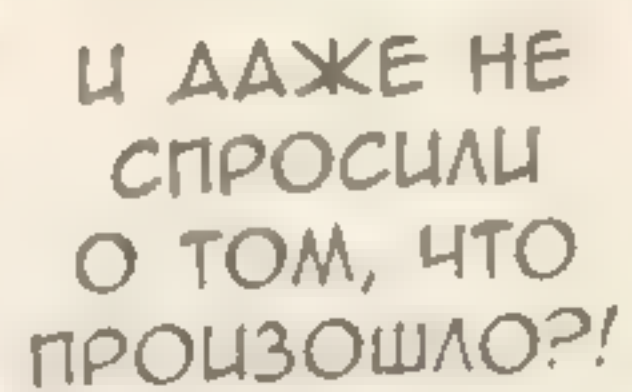 И ДАЖЕ НЕ
СПРОСИЛИ
О ТОМ, ЧТО
ПРОИЗОШЛО?!